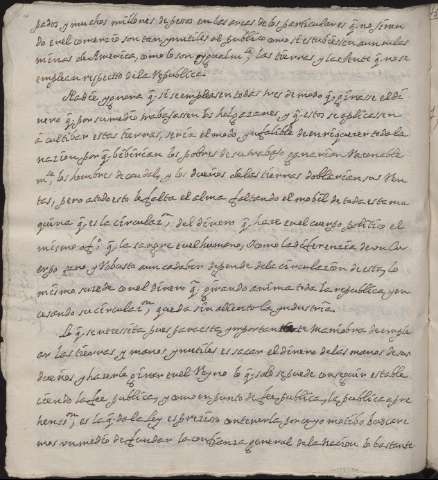 pados, y muchos millones de pesos en las arcas de los particulares q.e no sirven
do en el comercio son tan ynutiles al publico como si estubiesen aun en las
minas de America, como lo son ygualm.te las tierras y la Gente q.e no se
emplean respecto de la Republica.
Nadie ygnora q.e si se empleasen todas tres de modo q.e girase el di
nero q.e por su medio trabajasen los holgazanes, y q.e estos se aplicasen
à cultibar estas tierras, seria el modo ynfalible de enriquezer toda la
nazion, por q.e bibirian los pobres de su trabajo ganarian
m.te los hombres de caudal, y los dueños de las tierras doblarian sus Ren
tas, pero a todo esto le falta el alma faltando el mobil de toda esta ma
quina q.e es la circulaz.on del dinero q.e haze en el cuerpo politico el
mismo q.e la sangre en el humano, y como la diferencia de un cu
erpo sano, y Robusto a un cadaber depende de la circulacion de esta, lo
mismo suzede con el dinero q.e girando anima toda la republica, y en
cesando su circulaz.on queda sin aliento la yndustria.
Lo q.e se necesita pues para esta ymportante maniobra de emple
ar las tierras, y manos ynutiles es sacar el dinero de las manos de sus
dueños, y hazerla girar en el Reyno lo q.e solo se puede conseguir estable
ciendo la fee publica, y como en punto de fee publica, la publica apre
hension, es la q.e da la ley es preciso contenerla, por cuyo motibo buscare
mos un medio de fundar la confianza general de la Nacion lo bastante